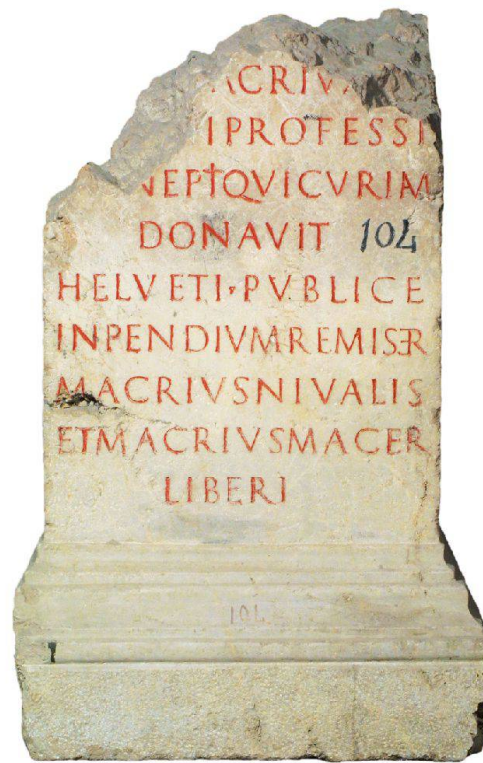 ACRIV
I PROFESSI
NEPT QVI CVRIM
DONAVIT 104
HELVETI · PVBLICE
INPENDIVM REMISER
MACRIVS NIVALIS
ET MACRIVS MACER
LIBERI
104